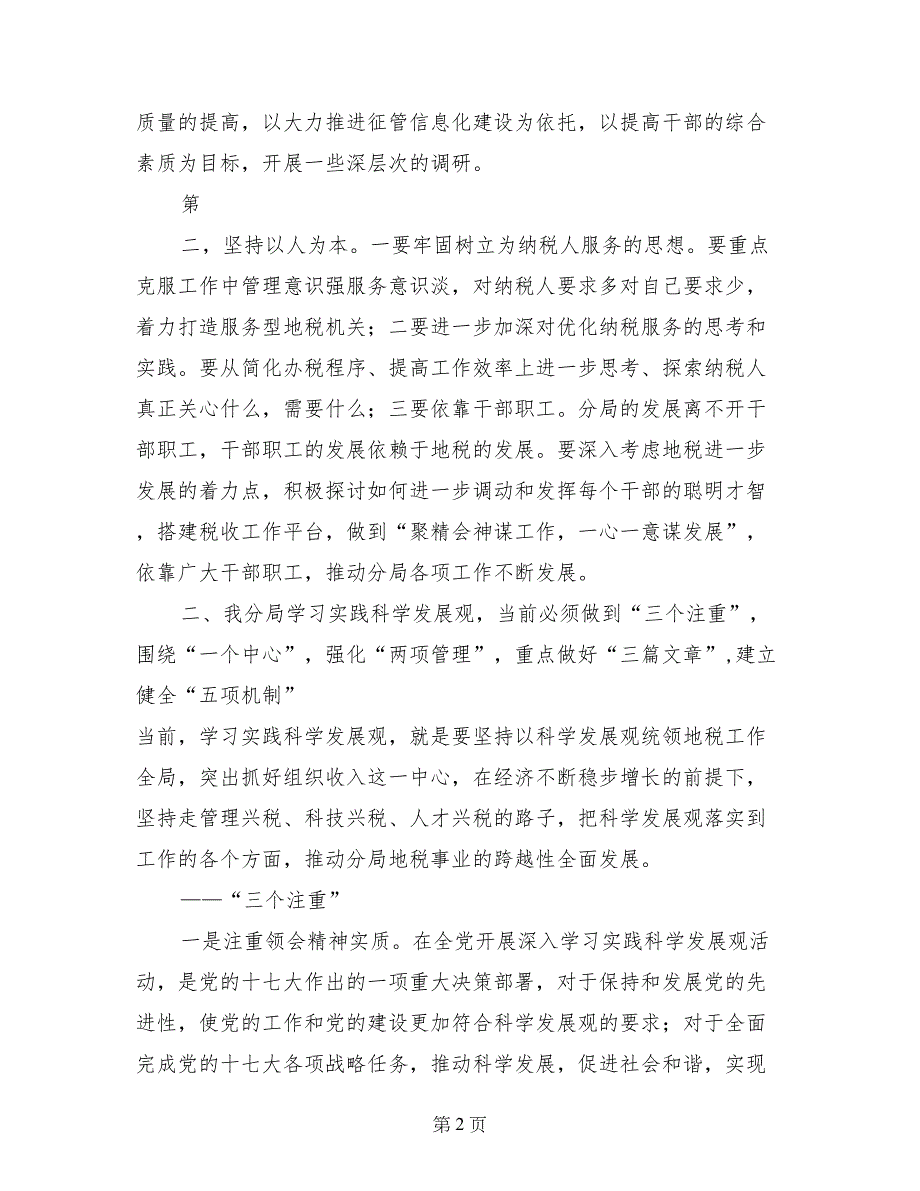 质量的提高，以大力推进征管信息化建设为依托，以提高干部的综合
素质为目标，开展一些深层次的调研。
第
二，坚持以人为本。一要牢固树立为纳税人服务的思想。要重点
克服工作中管理意识强服务意识淡，对纳税人要求多对自己要求少，
着力打造服务型地税机关；二要进一步加深对优化纳税服务的思考和
实践。要从简化办税程序、提高工作效率上进一步思考、探索纳税人
真正关心什么，需要什么；三要依靠干部职工。分局的发展离不开干
部职工，干部职工的发展依赖于地税的发展。要深入考虑地税进一步
发展的着力点，积极探讨如何进一步调动和发挥每个干部的聪明才智
，搭建税收工作平台，做到“聚精会神谋工作，一心一意谋发展”，
依靠广大干部职工，推动分局各项工作不断发展。
二、我分局学习实践科学发展观，当前必须做到“三个注重”，
围绕“一个中心”，强化“两项管理”，重点做好“三篇文章”,建立
健全“五项机制”
当前，学习实践科学发展观，就是要坚持以科学发展观统领地税工作
全局，突出抓好组织收入这一中心，在经济不断稳步增长的前提下，
坚持走管理兴税、科技兴税、人才兴税的路子，把科学发展观落实到
工作的各个方面，推动分局地税事业的跨越性全面发展。
——“三个注重”
一是注重领会精神实质。在全党开展深入学习实践科学发展观活
动，是党的十七大作出的一项重大决策部署，对于保持和发展党的先
进性，使党的工作和党的建设更加符合科学发展观的要求；对于全面
完成党的十七大各项战略任务，推动科学发展，促进社会和谐，实现
第 2 页